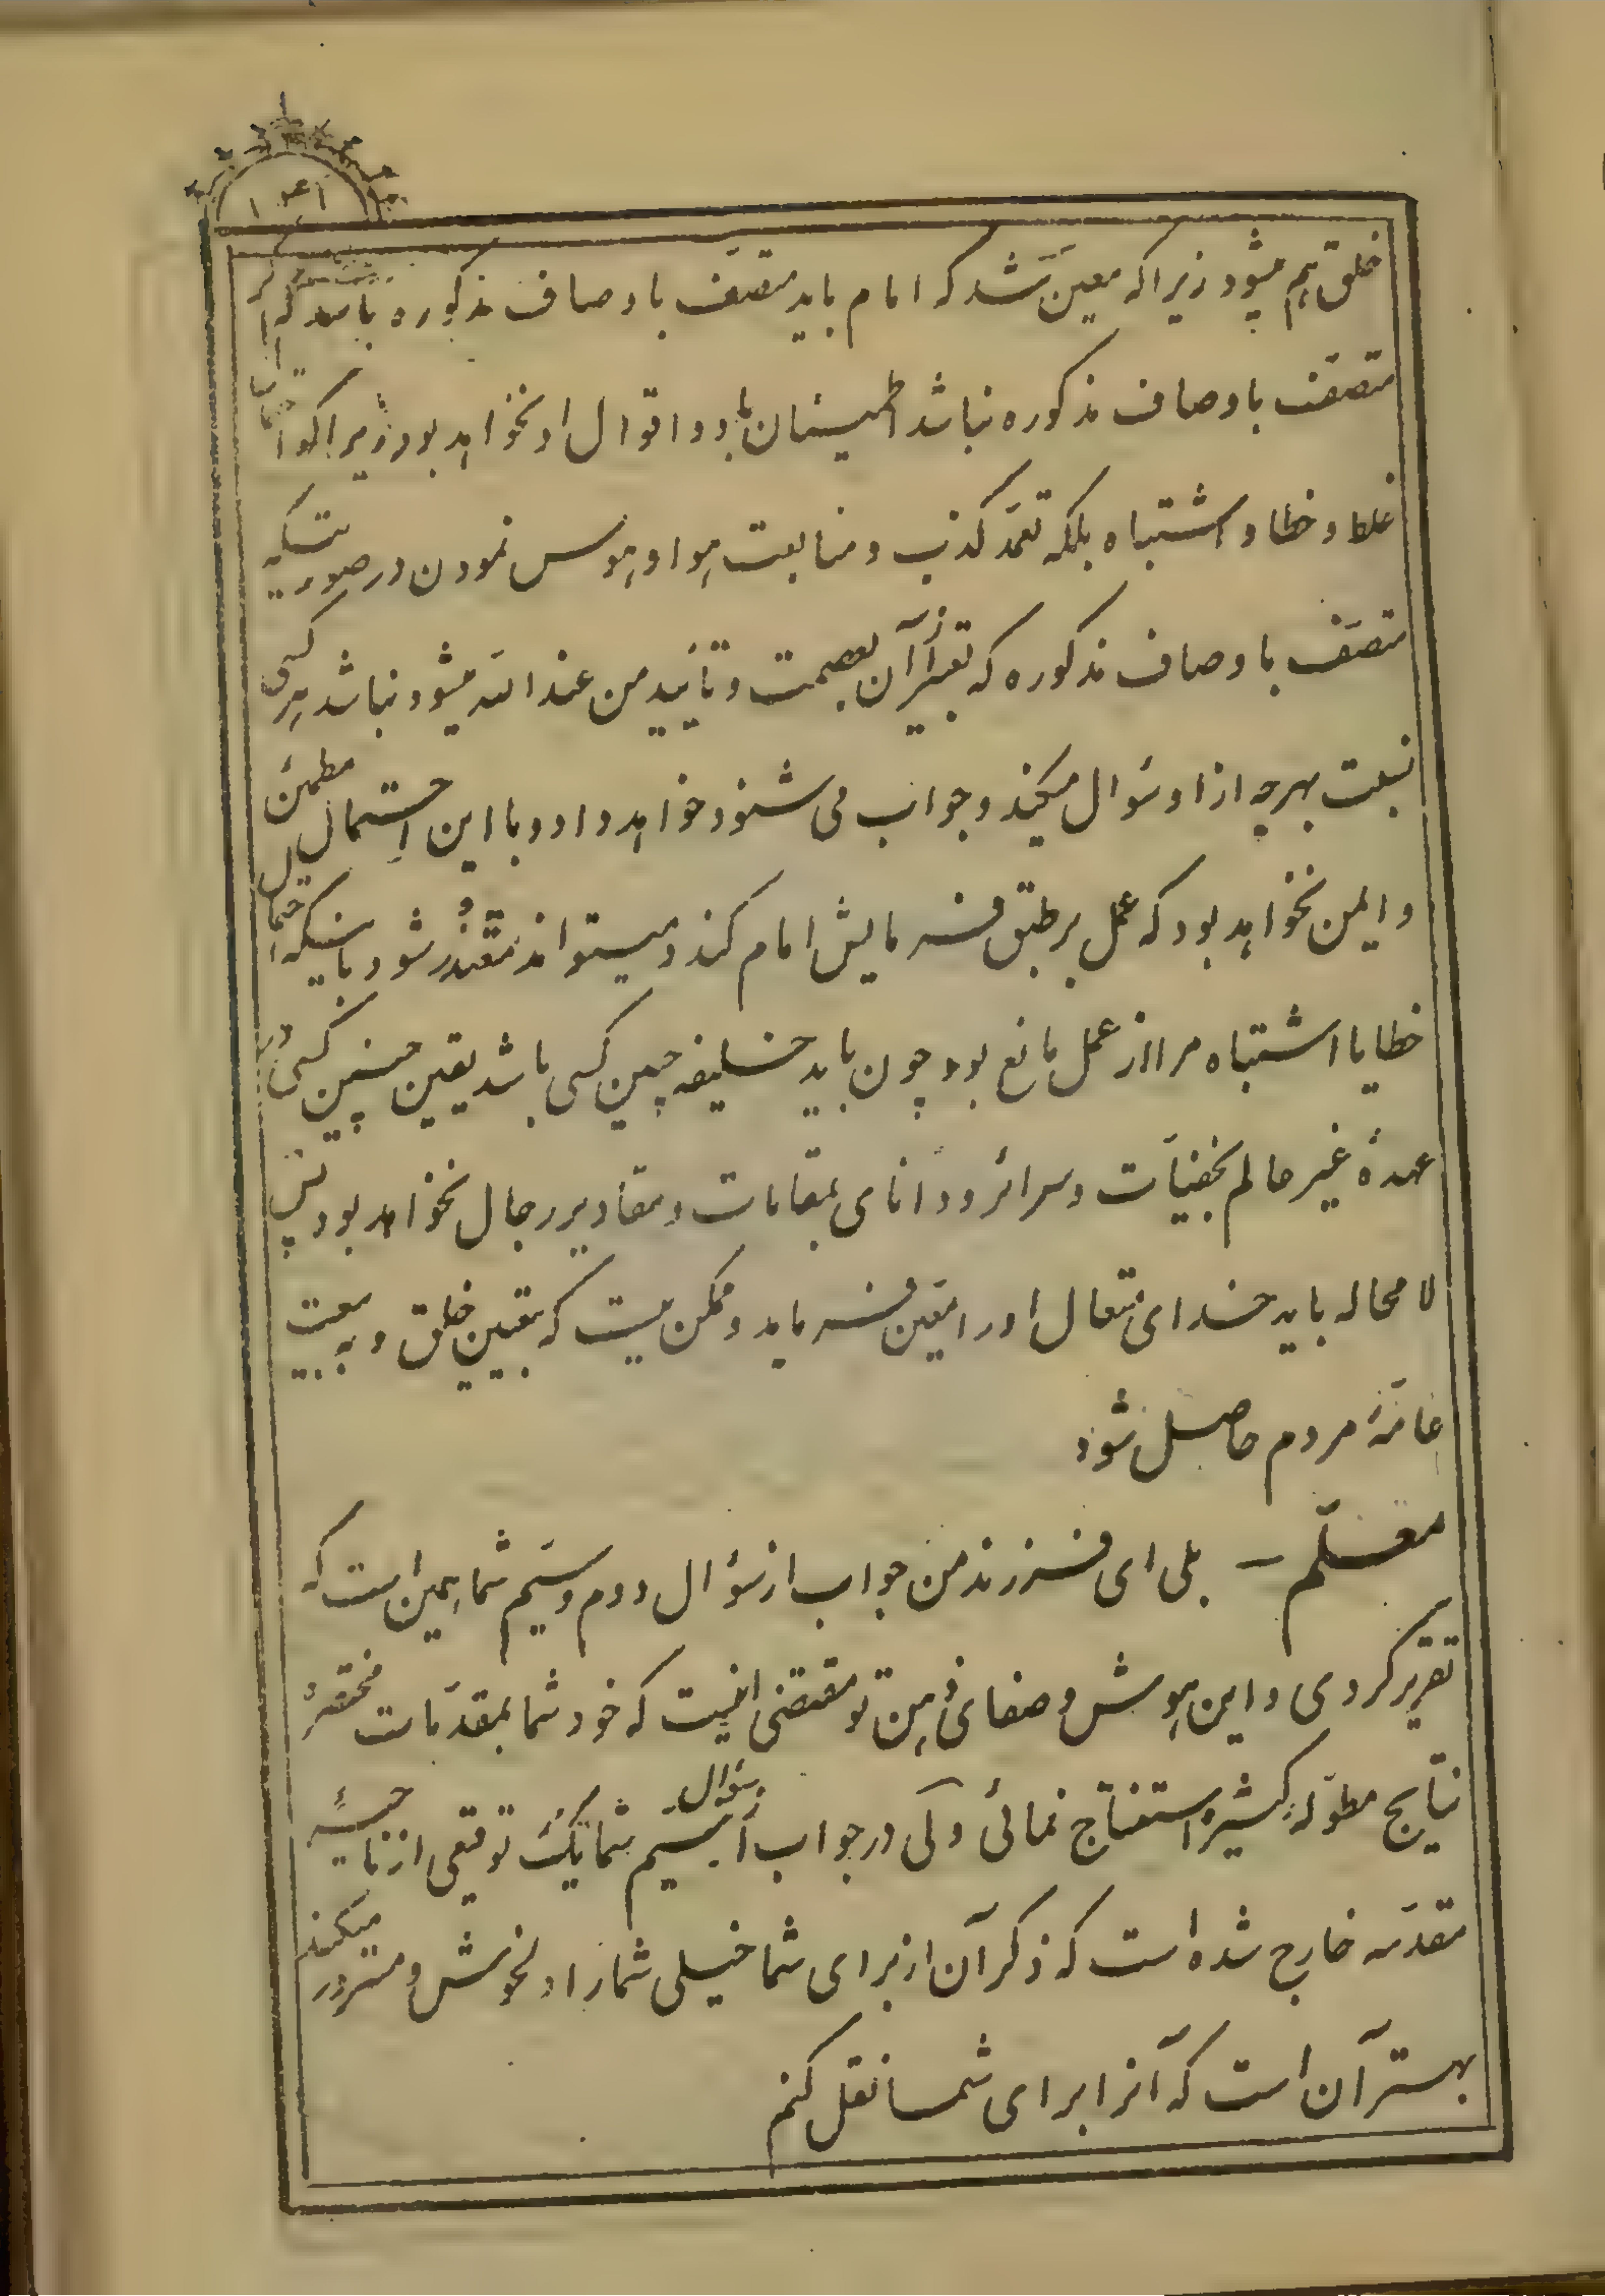 خلق هم میشود زیرا که معین شد که امام باید متصف باوصاف مذکوره باشد که اگر
متصف باوصاف مذکوره نباشد اطمینان باو و اقوال او نخواهد بود زیرا که احتمال
غلط و خطا و اشتباه بلکه تعمد کذب و متابعت هوا و هوس نمودن در صورتیکه
متصف باوصاف مذکوره که تعبیر از آن بعصمت و تأیید من عند الله میشود نباشد هر کسی
نسبت بهرچه از او سؤال میکند و جواب می شنود خواهد داد و با این احتمال مطمئن
و ایمن نخواهد بود که عمل بر طبق فرمایش امام کند و میتواند متعذر شود باینکه احتمال
خطا یا اشتباه مرا از عمل مانع بود چون باید خلیفه چنین کسی باشد یقین چنین کسی در
عهدهٔ غیر عالم بخفیات و سرائر و دانای بمقامات و مقادیر رجال نخواهد بود پس
لا محاله باید خدای متعال او را معین فرماید و ممکن نیست که بتعیین خلق و به بیعت
عامهٔ مردم حاصل شود
معلم – بلی ای فرزند من جواب از سؤال دوم و سیم شما همین است که
تقریر کردی و این هوش و صفای ذهن تو مقتضی اینست که خود شما بمقدمات مختصرهٔ
نتایج مطوله کثیره استنتاج نمائی ولی در جواب از سؤال سیم شما یک توقیعی از ناحیه
مقدسه خارج شده است که ذکر آن از برای شما خیلی شما را دلخوش و مسرور میکند
بهتر آن است که آنرا برای شما نقل کنم